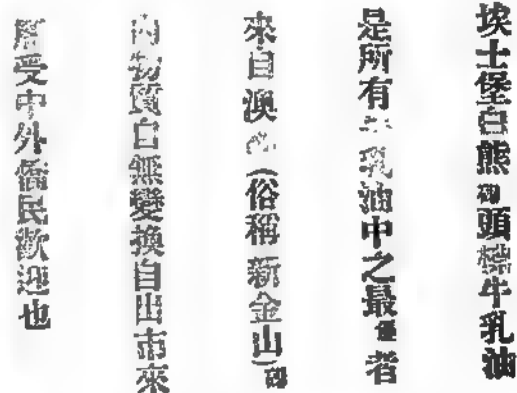 埃士堡白熊砌頭標牛乳油
是所有牛乳油中之最佳者
來自澳洲(俗稱新金山)砌
內物質白無變換自出市來
屢受中外僑民歡迎也